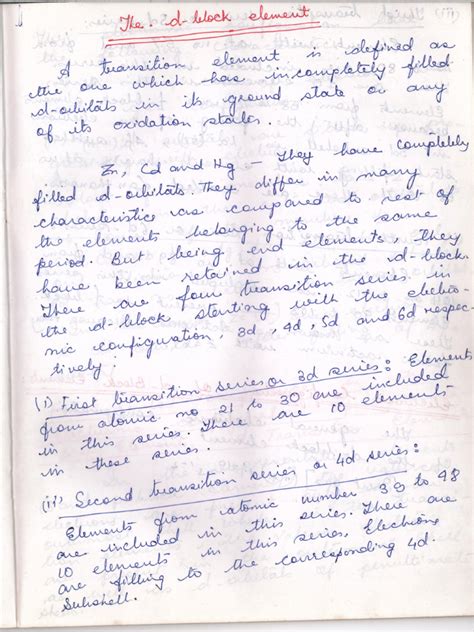 The d-block element
A transition element is defined as
the one which has incompletely filled
d-orbitals in its ground state or any
of its oxidation states.
Zn, Cd and Hg - They have completely
filled d-orbitals. They differ in many
characteristics as compared to rest of
the elements belonging to the same
period. But being end elements, they
have been retained in the d-block.
There are four transition series in
the d-block starting with the electro-
nic configuration, 3d, 4d, 5d and 6d respec-
tively:
(i) First transition series or 3d series: Elements
from atomic no 21 to 30 are included
in this series. There are 10 elements
in these series.
(ii) Second transition series or 4d series:
Elements from atomic number 39 to 48
are included in this series. There are
10 elements in this series, Electrons
are filling to the corresponding 4d.
Subshell.